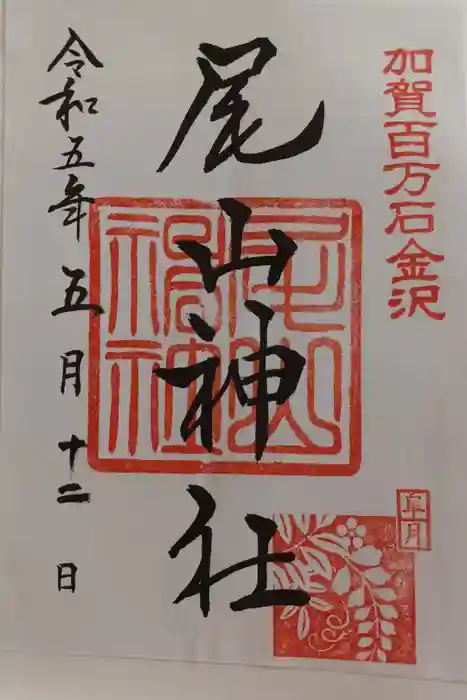 加賀百万石金沢
尾山神社
尾山神社
皐月
令和五年五月十二日